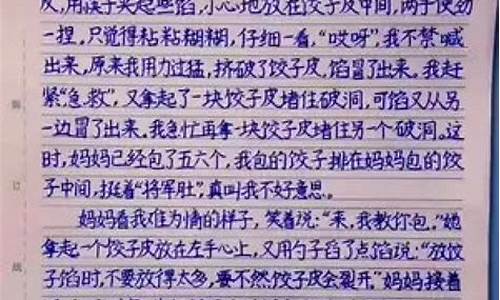 皮,用筷子夹起些馅,小心地放在饺子皮中间,两手使劲
一捏,只觉得粘粘糊糊,仔细一看,“哎呀”,我不禁喊
出来,原来我用力过猛,挤破了饺子皮,馅冒了出来。我赶
紧“急救”,又拿起了一块饺子皮堵住破洞,可馅又从另
一边冒了出来。我急忙再拿一块饺子皮堵住另一个破洞。这
时,妈妈已经包了五六个,我包的饺子排在妈妈包的饺
子中间,挺着“将军肚”,真叫我不好意思。
妈妈看我难为情的样子,笑着说:“来,我教你包。”她
拿起一个饺子皮放在左手心上,又用勺子舀了点馅说:“放饺
子馅时,不要放得太多,要不然,饺子皮会裂开。”妈妈接着
订
线